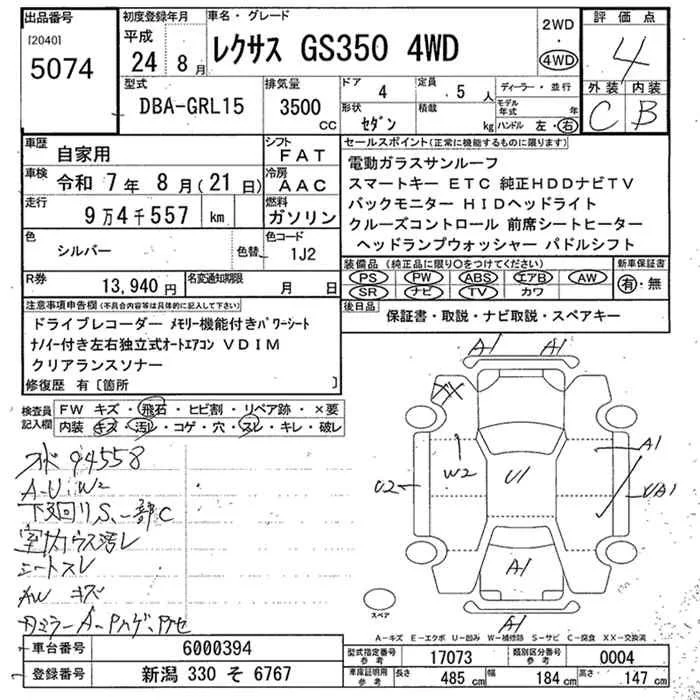 出品番号 初度登録年月 車名・グレード 2WD 評価点
[2040] 平成 レクサス GS350 4WD 4WD 4
5074 24年 8月 外装 内装
型式 排気量 ドア 4 定員 5人 ディーラー・並行 C B
DBA-GRL15 3500cc 形状 セダン 積載 kg モデル年式 年
ハンドル 左・右
車歴 自家用 シフト FAT セールスポイント(正常に機能するものに限ります)
車検 令和 7年 8月(21日) 冷房 AAC 電動ガラスサンルーフ
スマートキー ETC 純正HDDナビTV
走行 9万4千557 km 燃料 ガソリン バックモニター HIDヘッドライト
クルーズコントロール 前席シートヒーター
色 シルバー 色替 色コード 1J2 ヘッドランプウォッシャー パドルシフト
R券 13,940円 名変通知期限 月 日 装備品(純正品に限り○をつけてください) 新車保証書
PS PW ABS エアB AW 有・無
SR ナビ TV カワ
注意事項申告欄(不具合内容等は具体的に記入して下さい) 後日品 保証書・取説・ナビ取説・スペアキー
ドライブレコーダー メモリー機能付きパワーシート
ナノイー付き左右独立式オートエアコン VDIM
クリアランスソナー
修復歴 有〔箇所 〕
検査員記入欄 FW キズ・飛石・ヒビ割・リペア跡・×要
内装 キズ・汚レ・コゲ・穴・スレ・キレ・破レ
94558
A-U:W2
下回りS、一部C
シートスレ
AW キズ
A1 A1
W2 U1 A1
U2 UA1
A1
A1
スペア
A-キズ E-エクボ U-凹み W-補修跡 S-サビ C-腐食 XX-交換済
車台番号 6000394 型式指定番号 参考 17073 類別区分番号 参考 0004
登録番号 新潟 330 そ 6767 車庫証明用 参考 長さ 485cm 幅 184cm 高さ 147cm